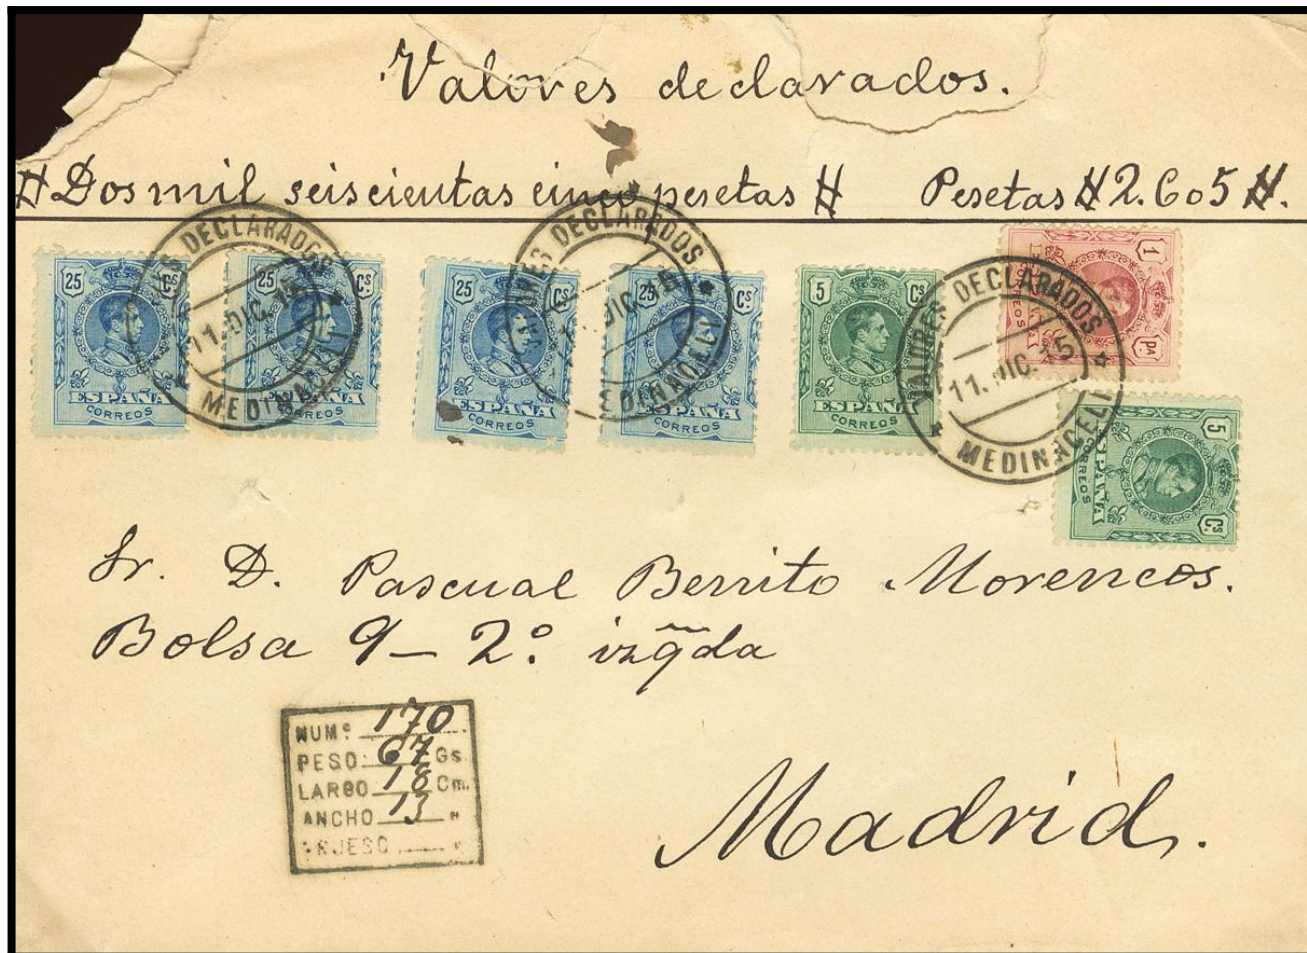 Valores declarados.
# Dos mil seiscientas cinco pesetas # Pesetas # 2.605 #.
25 Cs ESPAÑA CORREOS
25 Cs ESPAÑA CORREOS
25 Cs ESPAÑA CORREOS
25 Cs ESPAÑA CORREOS
5 Cs ESPAÑA CORREOS
1 PA
5 Cs ESPAÑA CORREOS
DECLARADOS 11.DIC.15 MEDINACELI
VALORES DECLARADOS 11.DIC.15 MEDINACELI
VALORES DECLARADOS 11.DIC.15 MEDINACELI
Sr. D. Pascual Benito Morencos.
Bolsa 9 – 2.º izqda
NUMº 170
PESO 67 Gs.
LARGO 18 Cm.
ANCHO 13 "
GRUESO "
Madrid.